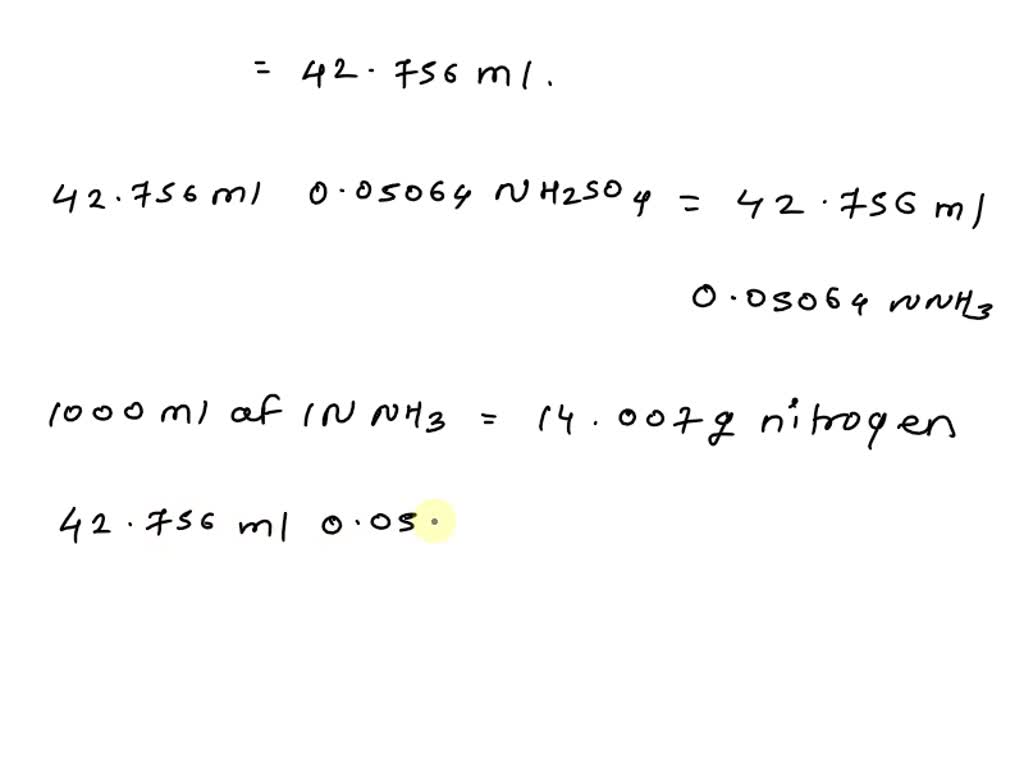 = 42.756 ml.
42.756 ml 0.05064 N H2SO4 = 42.756 ml
0.05064 N NH3
1000 ml af 1N NH3 = 14.007g nitrogen
42.756 ml 0.05